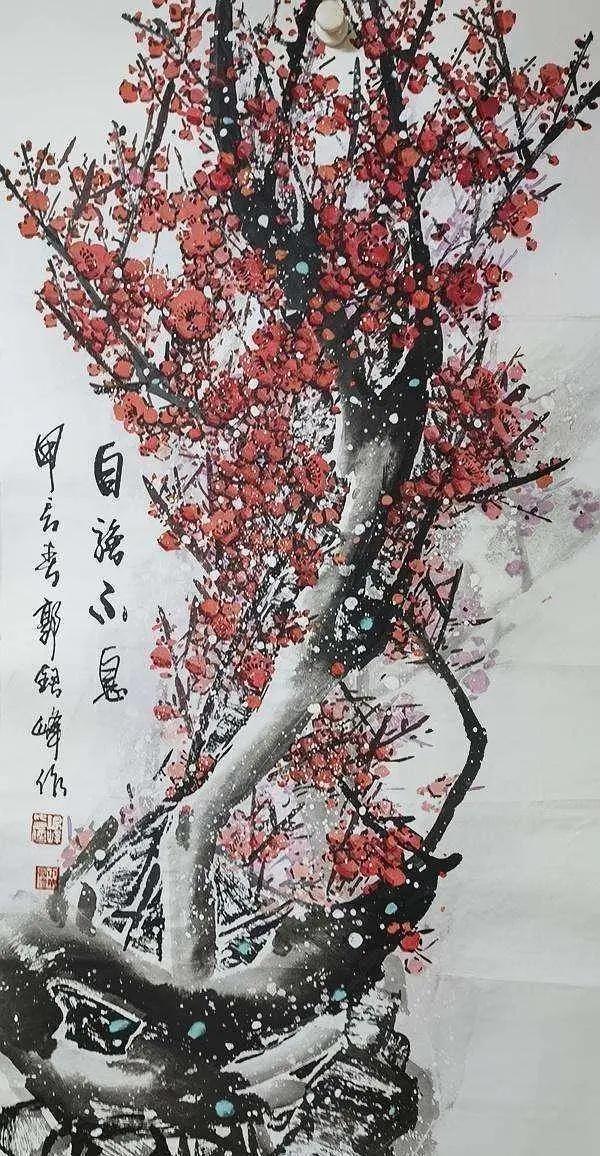 自强不息
甲辰春郭峰作